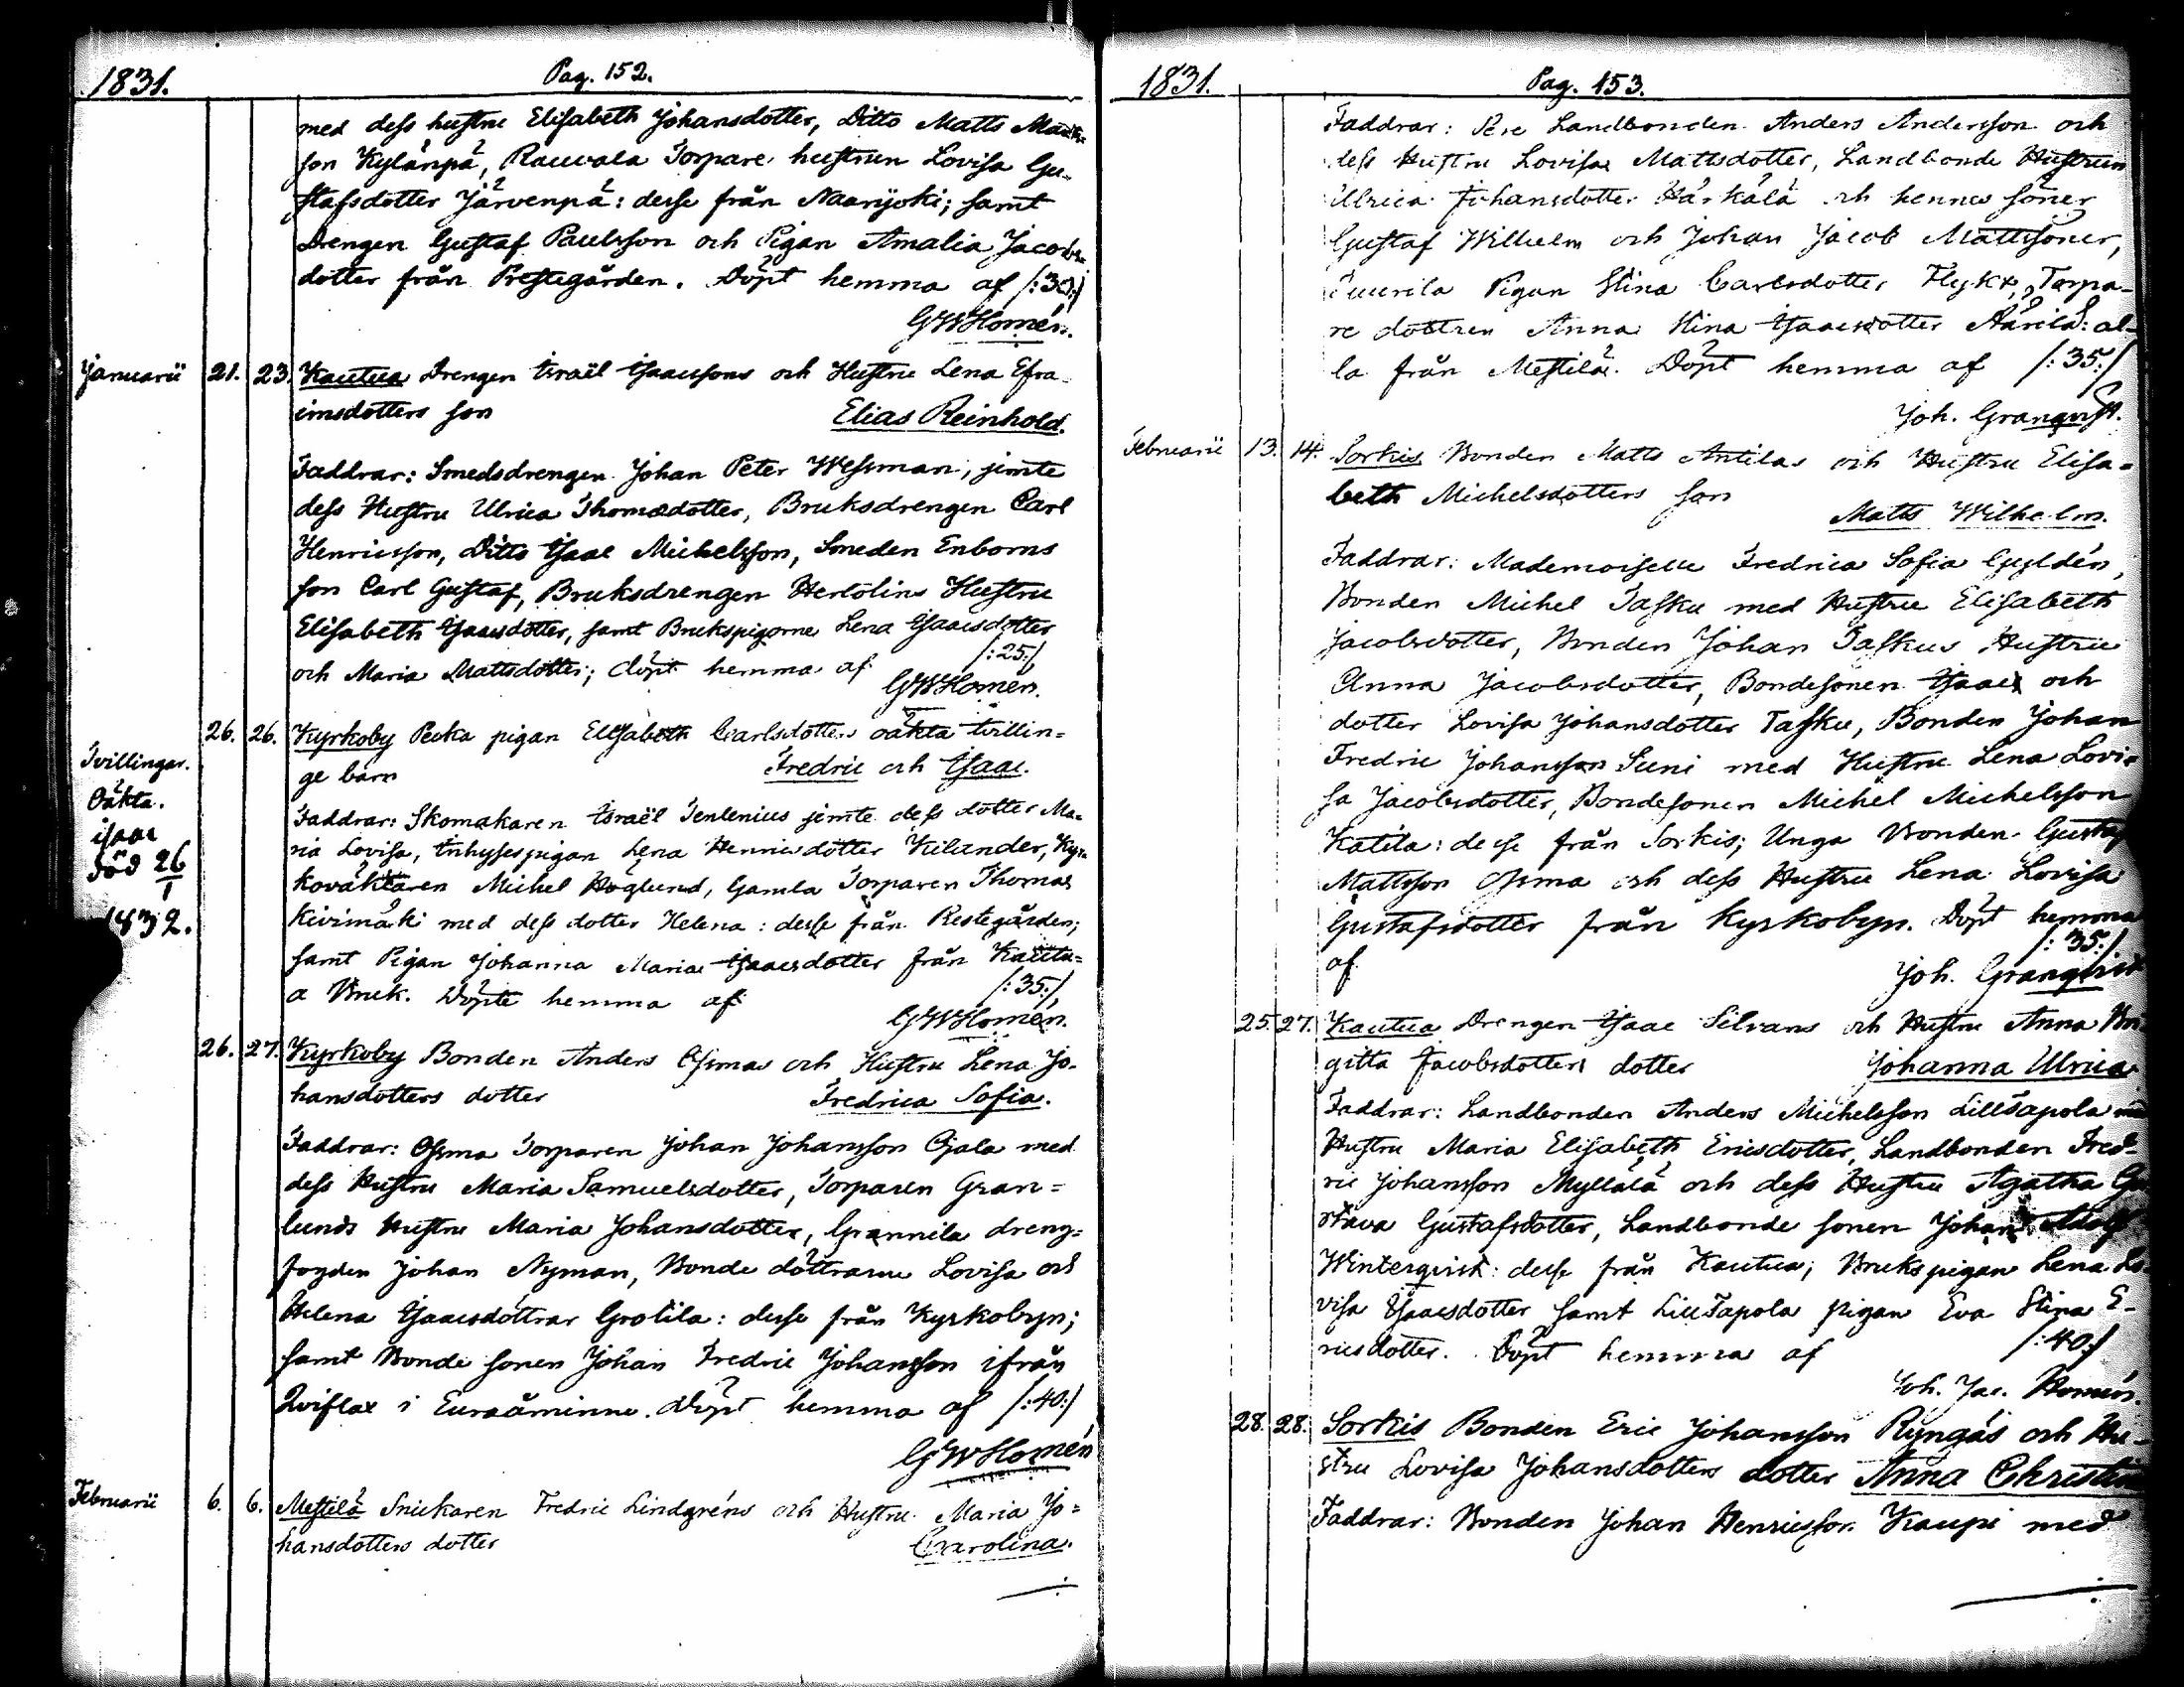 1831.
Pag. 152.
med dess hustru Elisabeth Johansdotter, Ditto Matts Matts-
son Kylänpä, Rauvola Torpare hustrun Lovisa Gu-
stafsdotter Järvenpä: desse från Naarijoki; samt
Drengen Gustaf Paulsson och Pigan Amalia Jacobs-
dotter från Prestegården. Döpt hemma af /:30:/
GWHomén.
Januarii 21. 23. Kautua Drengen Israël Isaacssons och Hustru Lena Efra-
imsdotters son Elias Reinhold.
Faddrar: Smedsdrengen Johan Peter Wessman, jemte
dess Hustru Ulrica Thomasdotter, Bruksdrengen Carl
Henricsson, Ditto Isaac Michelsson, Smeden Enboms
son Carl Gustaf, Bruksdrengen Hertolins Hustru
Elisabeth Isaacsdotter, samt Brukspigorne Lena Isaacsdotter
och Maria Mattsdotter; döpt hemma af /:25:/
GWHomén.
26. 26. Kyrkoby Pecka pigan Elisabeth Carlsdotters oäkta tvillin=
ge barn Fredric och Isaac.
Tvillingar.
Oäkta.
isaac
död 26/1
1832.
Faddrar: Skomakaren Israël Tenlenius jemte dess dotter Ma=
ria Lovisa, Inhysespigan Lena Henricsdotter Kilander, Kyr-
koväktaren Michel Höglund, Gamla Torparen Thomas
Kivimäki med dess dotter Helena: desse från Prestegården;
samt Pigan Johanna Maria Isaacsdotter från Kautu=
a Bruk. Döpte hemma af /:35:/
GWHomén.
26. 27. Kyrkoby Bonden Anders Ossmas och Hustru Lena Jo-
hansdotters dotter Fredrica Sofia.
Faddrar: Ossma Torparen Johan Johansson Ojala med
dess Hustru Maria Samuelsdotter, Torparen Gran=
lunds Hustru Maria Johansdotter, Grannila dreng=
fogden Johan Nyman, Bonde döttrarne Lovisa och
Helena Isaacsdöttrar Grotila: desse från Kyrkobyn;
samt Bonde sonen Johan Fredric Johansson ifrån
Qviflax i Euraåminne. Döpt hemma af /:40:/
GWHomén
Februarii 6. 6. Mestilä Snickaren Fredric Lindgréns och Hustru Maria Jo=
hansdotters dotter Carolina.
1831.
Pag. 153.
Faddrar: Landbonden Anders Andersson och
dess Hustru Lovisa Mattsdotter, Landbonde Hustrun
Ulrica Johansdotter Härkälä och hennes söner
Gustaf Wilhelm och Johan Jacob Mattssöner,
Pigan Stina Carlsdotter Flykt, Torpa-
re dottren Anna Stina Isaacsdotter Äärilä: al-
la från Mestilä. Döpt hemma af /:35:/
Joh. Granqvist.
Februarii 13. 14. Sorkis Bonden Matts Antilas och Hustru Elisa=
beth Michelsdotters son Matts Wilhelm.
Faddrar: Mademoiselle Fredrica Sofia Gyldén,
Bonden Michel Tasku med Hustru Elisabeth
Jacobsdotter, Bonden Johan Taskus Hustru
Anna Jacobsdotter, Bondesonen Isaac och
dotter Lovisa Johansdotter Tasku, Bonden Johan
Fredric Johansson Suni med Hustru Lena Lovi-
sa Jacobsdotter, Bondesonen Michel Michelsson
Katila: desse från Sorkis; Unga Bonden Gustaf
Mattsson Ossma och dess Hustru Lena Lovisa
Gustafsdotter från Kyrkobyn. Döpt hemma
af /:35:/
Joh. Granqvist
25. 27. Kautua Drengen Isaac Silvans och Hustru Anna Bri
gitta Jacobsdotters dotter Johanna Ulrica
Faddrar: Landbonden Anders Michelsson Lilltapola
Hustru Maria Elisabeth Ericsdotter, Landbonden Fred-
ric Johansson Myllälä och dess Hustru Agatha Gu
stava Gustafsdotter, Landbonde sonen Johan Adolf
Winterqvist: desse från Kautua; Brukspigan Lena Lo
visa Isaacsdotter samt LillTapola pigan Eva Stina E-
ricsdotter. Döpt hemma af /:40:/
Joh. Jac. Homén.
28. 28. Sorkis Bonden Eric Johansson Ryngäs och Hu-
stru Lovisa Johansdotters dotter Anna Christina
Faddrar: Bonden Johan Henricsson Kaupi med